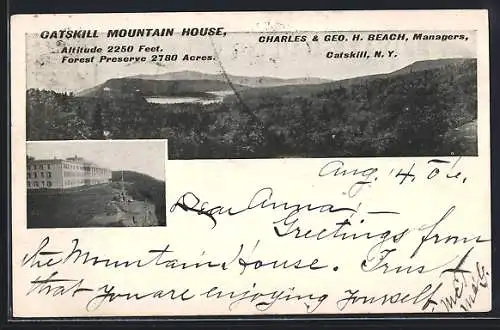 CATSKILL MOUNTAIN HOUSE,
Altitude 2250 Feet.
Forest Preserve 2780 Acres.
CHARLES & GEO. H. BEACH, Managers,
Catskill, N.Y.
Aug. 4. 06.
Dear Anna:
Greetings from
the Mountain House. Trust
that you are enjoying yourself,